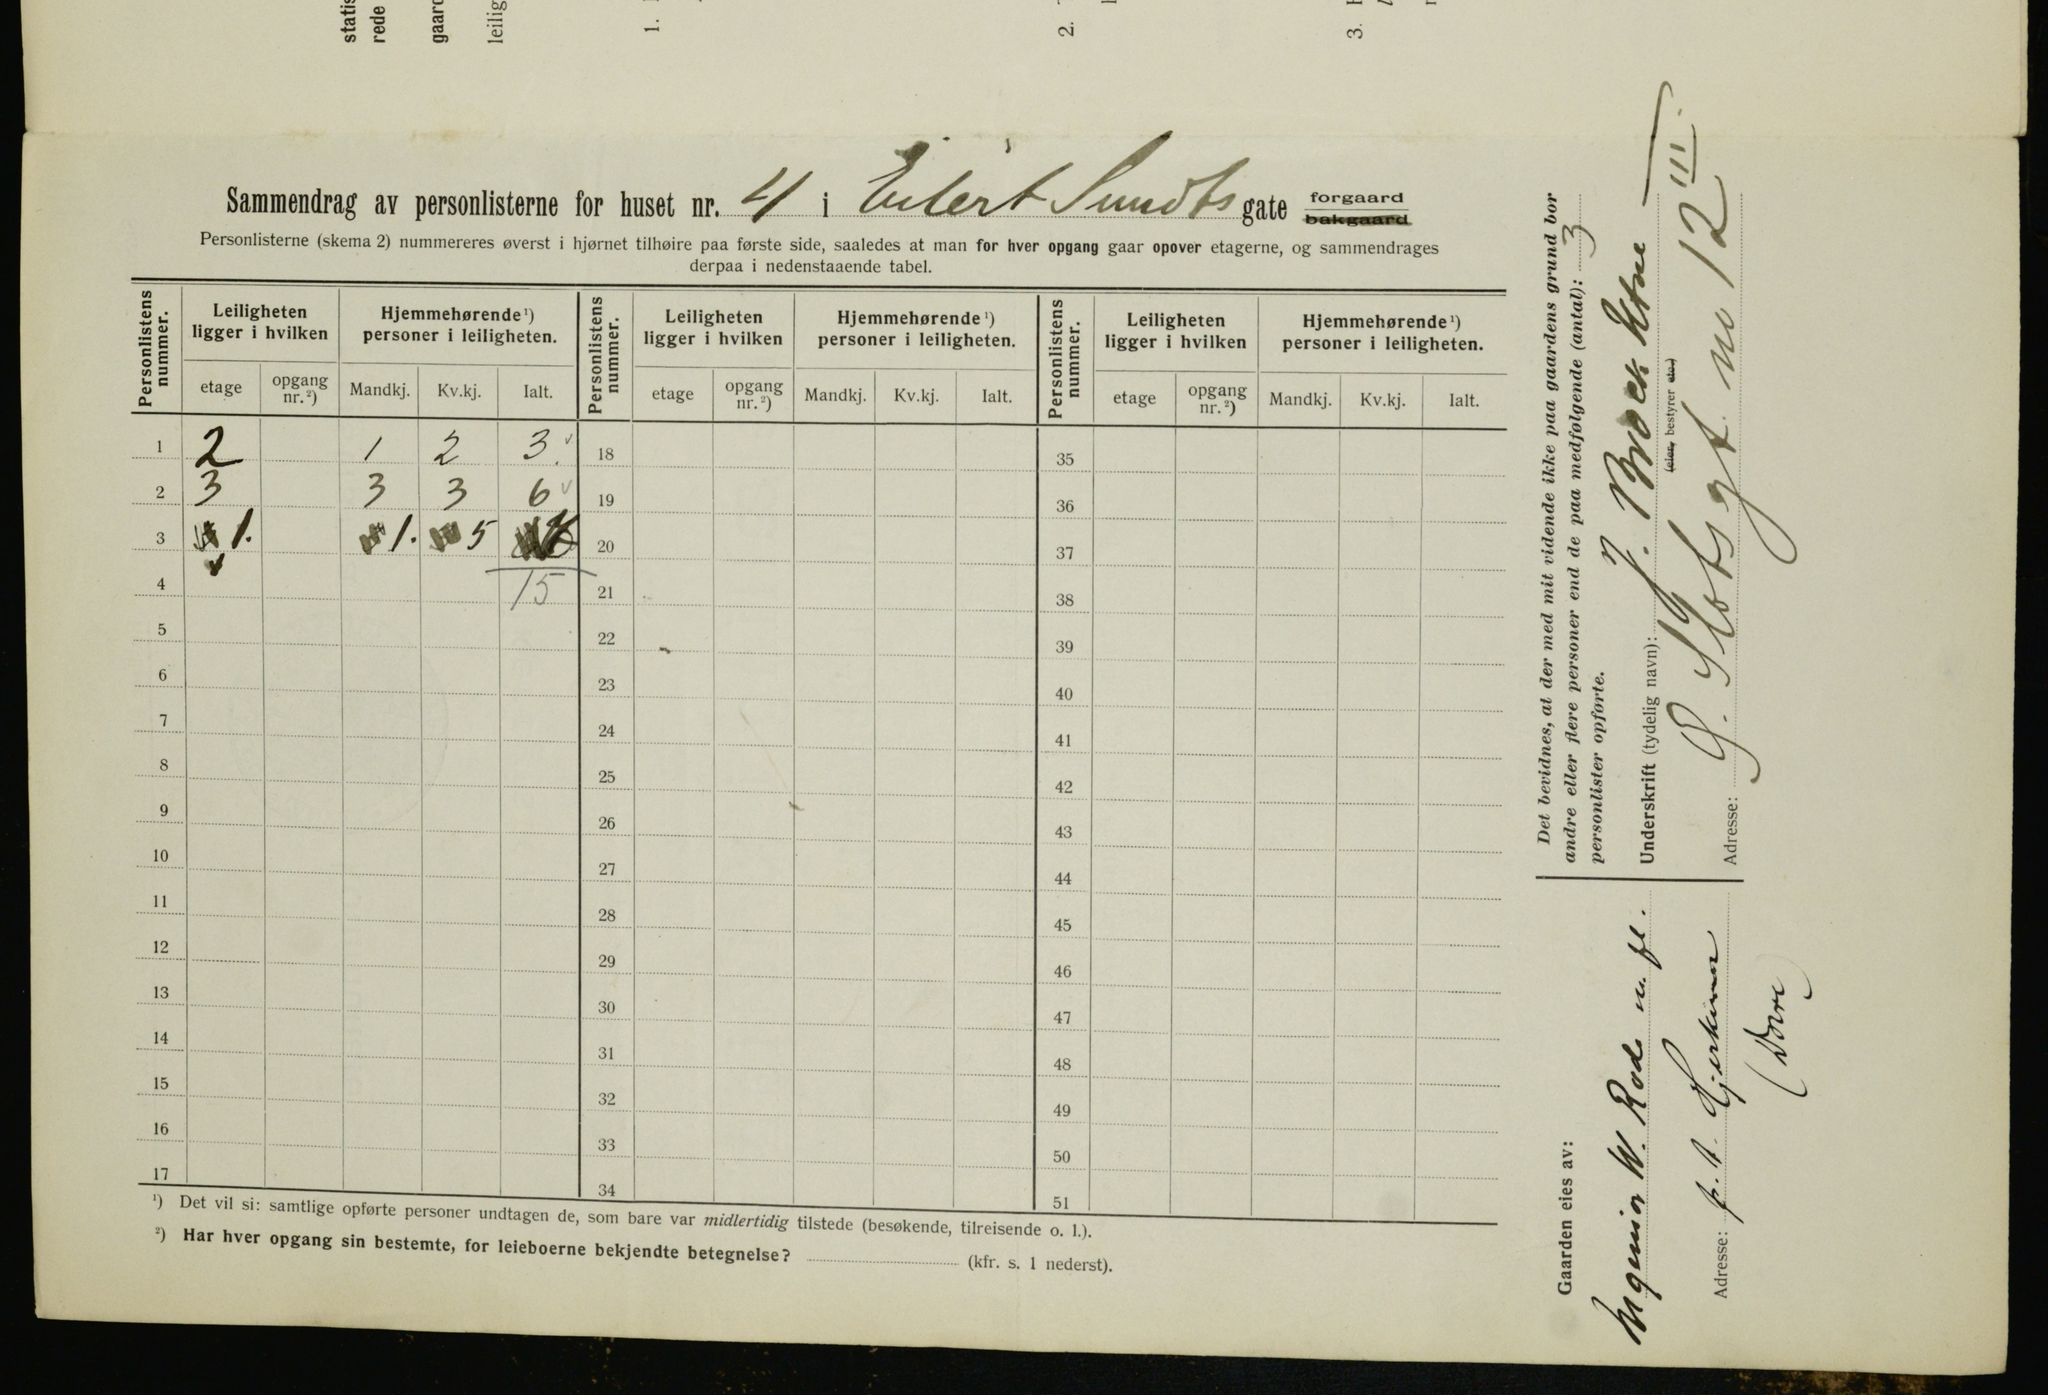 statis
rede
gaard
leilig
1.
2.
3.
Sammendrag av personlisterne for huset nr. 4 i Eilert Sundts gate forgaard bakgaard
Personlisterne (skema 2) nummereres øverst i hjørnet tilhøire paa første side, saaledes at man for hver opgang gaar opover etagerne, og sammendrages
derpaa i nedenstaaende tabel.
Personlistens nummer. Leiligheten ligger i hvilken Hjemmehørende ¹) personer i leiligheten. Personlistens nummer. Leiligheten ligger i hvilken Hjemmehørende ¹) personer i leiligheten. Personlistens nummer. Leiligheten ligger i hvilken Hjemmehørende ¹) personer i leiligheten.
etage opgang nr. ²) Mandkj. Kv.kj. Ialt. etage opgang nr. ²) Mandkj. Kv.kj. Ialt. etage opgang nr. ²) Mandkj. Kv.kj. Ialt.
1 2 1 2 3. 18 35
2 3 3 3 6 19 36
3 1. 1. 5 6 20 37
4 15 21 38
5 22 39
6 23 40
7 24 41
8 25 42
9 26 43
10 27 44
11 28 45
12 29 46
13 30 47
14 31 48
15 32 49
16 33 50
17 34 51
¹) Det vil si: samtlige opførte personer undtagen de, som bare var midlertidig tilstede (besøkende, tilreisende o. l.).
²) Har hver opgang sin bestemte, for leieboerne bekjendte betegnelse? (kfr. s. 1 nederst).
Det bevidnes, at der med mit vidende ikke paa gaardens grund bor
andre eller flere personer end de paa medfølgende (antal): 3
personlister opførte.
Underskrift (tydelig navn): J.
(eier, bestyrer etc.)
Adresse: Ø. Slotsgt. no 12 III.
Gaarden eies av:
W. Rode m. fl.
Adresse: p. t. Hjerkinn
(Dovre)